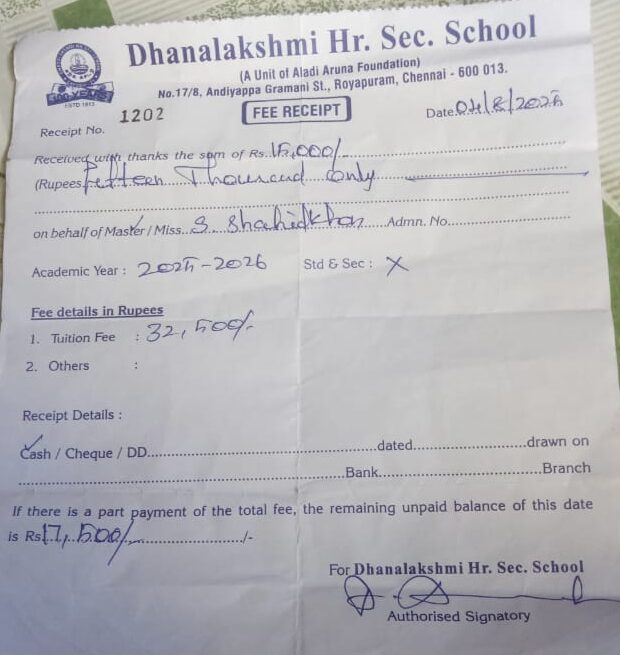 Dhanalakshmi Hr. Sec. School
(A Unit of Aladi Aruna Foundation)
No.17/8, Andiyappa Gramani St., Royapuram, Chennai - 600 013.
100 YEARS
ESTD 1913
Receipt No. 1202
FEE RECEIPT
Date 04/8/2025
Received with thanks the sum of Rs. 15,000/-
(Rupees Fifteen Thousand only
on behalf of Master / Miss. S. Shahidkhan Admn. No.
Academic Year : 2025-2026 Std & Sec : X
Fee details in Rupees
1. Tuition Fee : 32,500/-
2. Others :
Receipt Details :
Cash / Cheque / DD dated drawn on
Bank Branch
If there is a part payment of the total fee, the remaining unpaid balance of this date
is Rs 17,500/- /-
For Dhanalakshmi Hr. Sec. School
Authorised Signatory